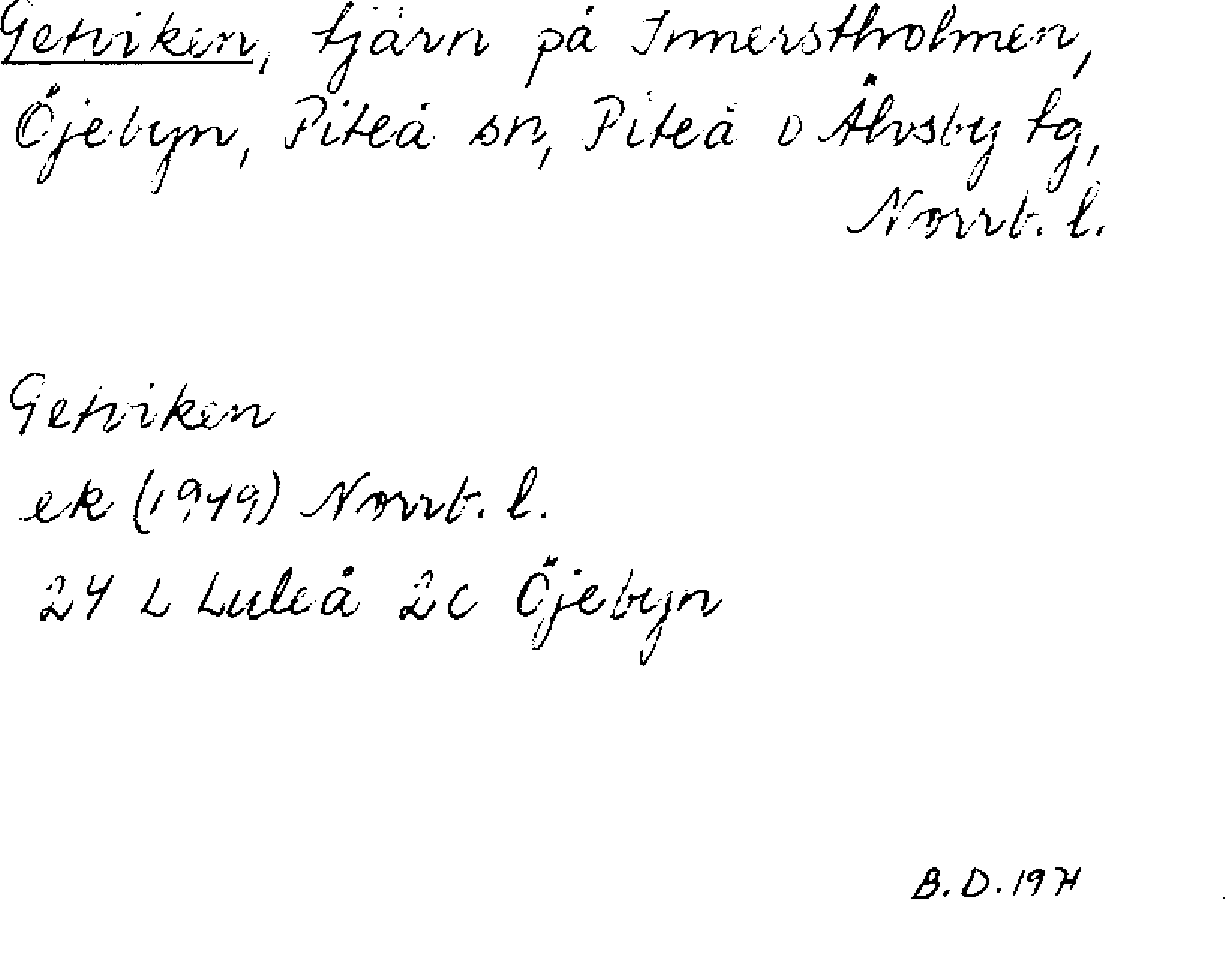 Getviken, tjärn på Innerstholmen,
Öjebyn, Piteå sn, Piteå o Älvsby tg,
Norrb. l.
Getviken
ek (1949) Norrb. l.
24 L Luleå 2c Öjebyn
B.D. 1971